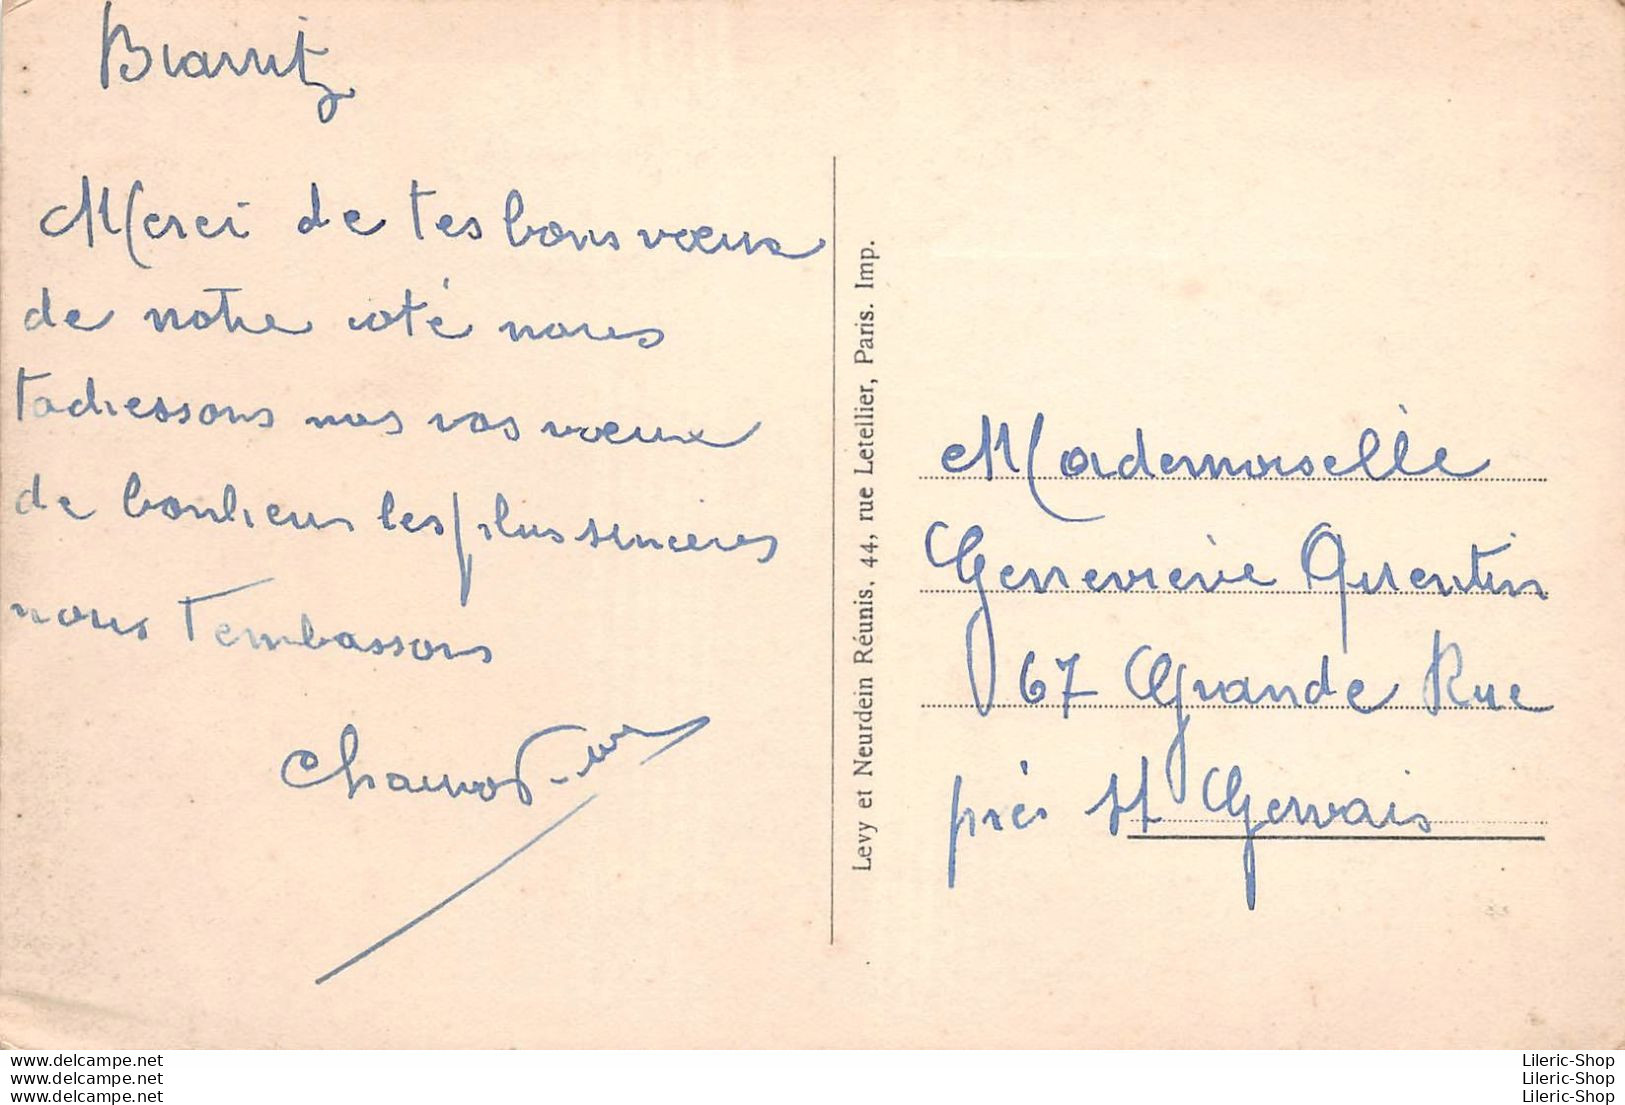 Biarritz
Merci de tes bons vœux
de notre coté nous
t'adressons nos vos vœux
de bonheur les plus sinceres
nous t'embassons
Levy et Neurdein Réunis. 44, rue Letellier, Paris. Imp.
Mademoiselle
Geneviève Quentin
67 Grande Rue
près St Gervais
www.delcampe.net
www.delcampe.net
www.delcampe.net
Lileric-Shop
Lileric-Shop
Lileric-Shop